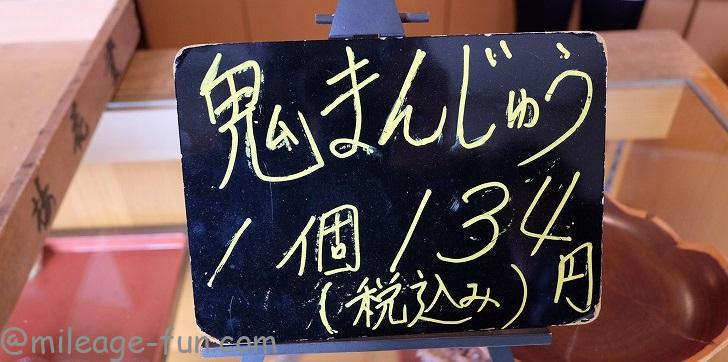 鬼まんじゅう
1個134円
(税込み)
@mileage-fun.com